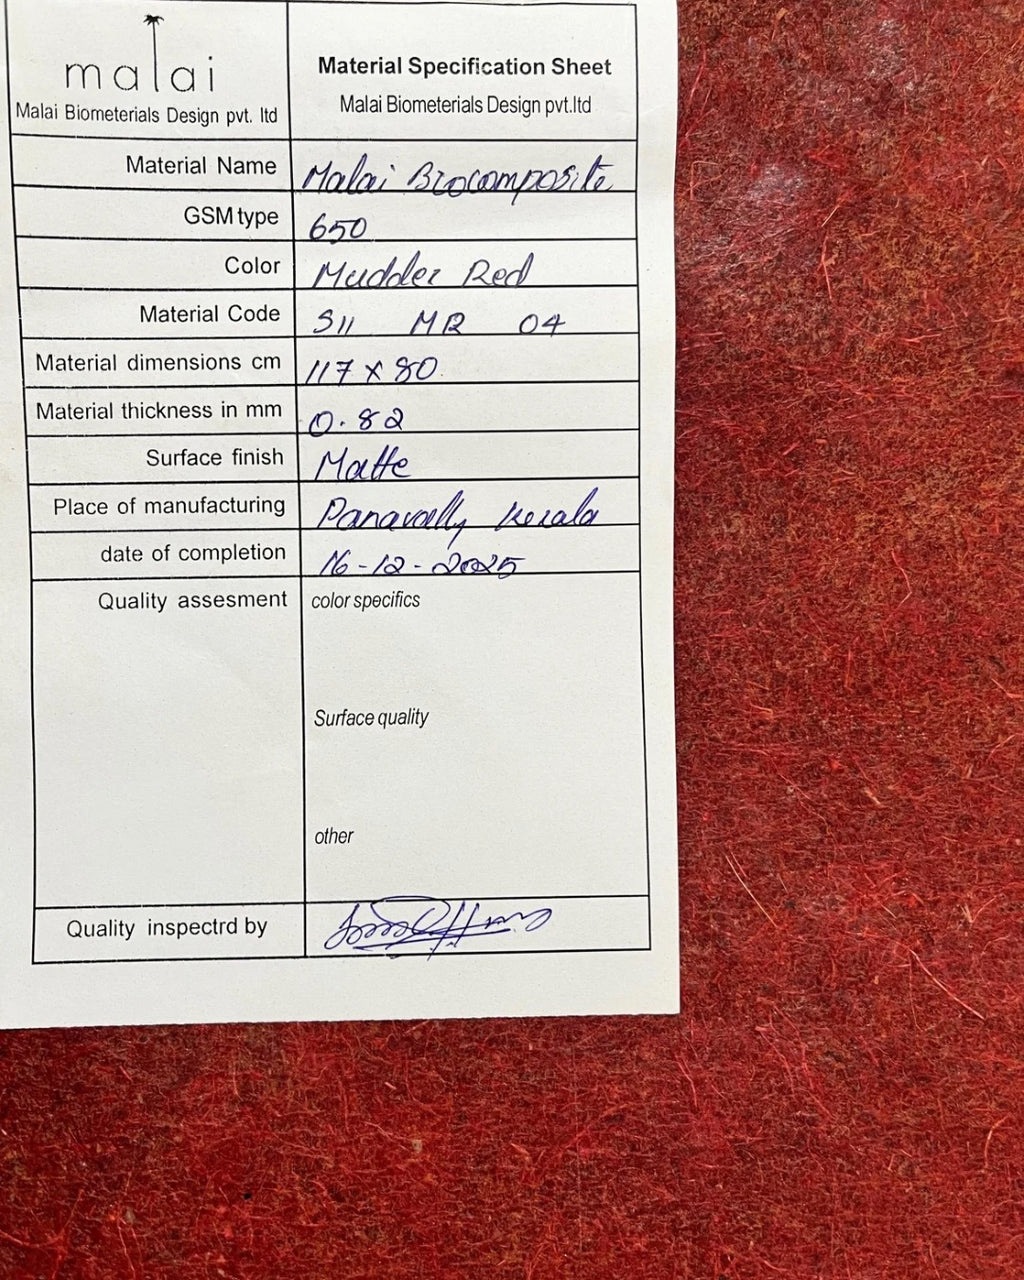 malai
Malai Biometerials Design pvt. ltd
Material Specification Sheet
Malai Biometerials Design pvt.ltd
Material Name Malai Biocomposite
GSM type 650
Color Mudder Red
Material Code S11 MR 04
Material dimensions cm 117 x 80
Material thickness in mm 0.82
Surface finish Matte
Place of manufacturing Panavally Kerala
date of completion 16-12-2025
Quality assesment color specifics
Surface quality
other
Quality inspectrd by